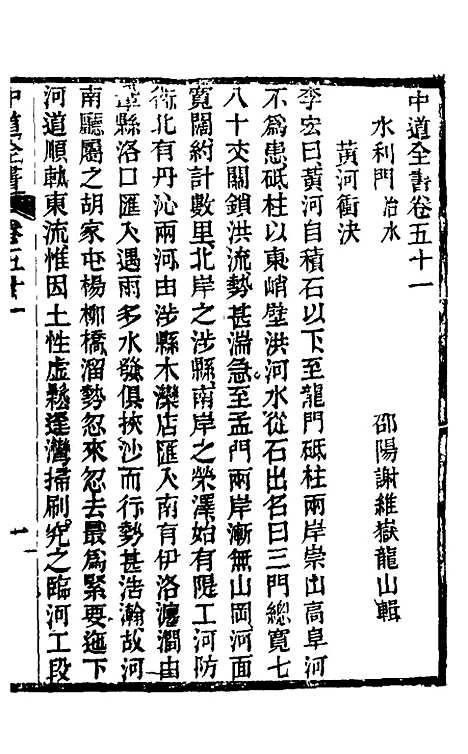 中道全書卷五十一
水利門 治水 邵陽謝維嶽龍山輯
黃河衝決
李宏曰黃河自積石以下至龍門砥柱兩岸崇出高阜河
不爲患砥柱以東峭壁洪河水從石出名曰三門總寬七
八十丈關鎖洪流勢甚湍急至孟門兩岸漸無山岡河面
寬闊約計數里北岸之涉縣南岸之榮澤始有隄工河防
衙北有丹沁兩河由涉縣木灤店匯入南有伊洛瀍澗由
鞏縣洛口匯入遇雨多水發俱挾沙而行勢甚浩瀚故河
南廳屬之胡家屯楊柳橋溜勢忽來忽去最爲緊要迤下
河道順軌東流惟因土性虛鬆逢灣掃刷究之臨河工段
中道全書 卷五十一 十一